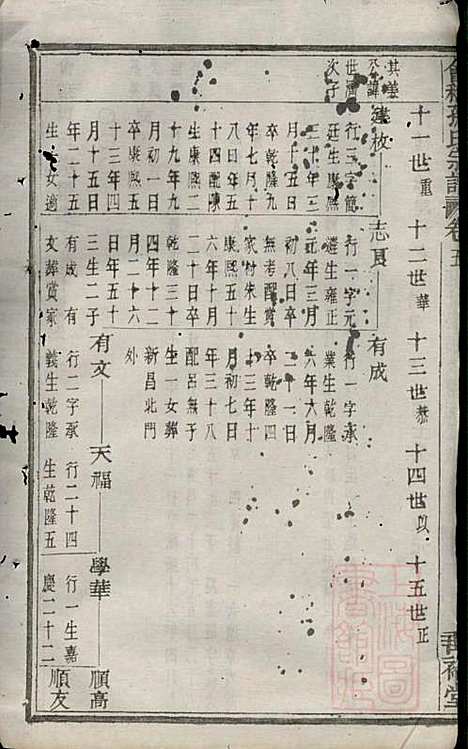 十一世重 十二世華 十三世恭 十四世以 十五世正
其義
公諱
世濟
次子
建枚
行三字簡
廷生康熙
三十年三
月十五日
卒乾隆九
年七月十
八日年五
十四配陳
生康熙二
十九年九
月初一日
卒康熙五
十三年四
月十五日
年二十五
生一女適
志夏
行一字元
遴生雍正
元年三月
初八日卒
無考配黄
家村朱生
康熙五十
二十日卒
乾隆三十
四年十二
月二十六
日年五十
三生二子
有成 有
文葬黄家
有成
行一字承
業生乾隆
六年六月
二十一日
卒乾隆四
十三年十
月初七日
年三十八
配呂無子
生一女葬
新昌北門
外
有文
行二字承
義生乾隆
天福
行二十四
生乾隆五
學華
行一生嘉
慶二十二
順高
順友
上海圖書館藏